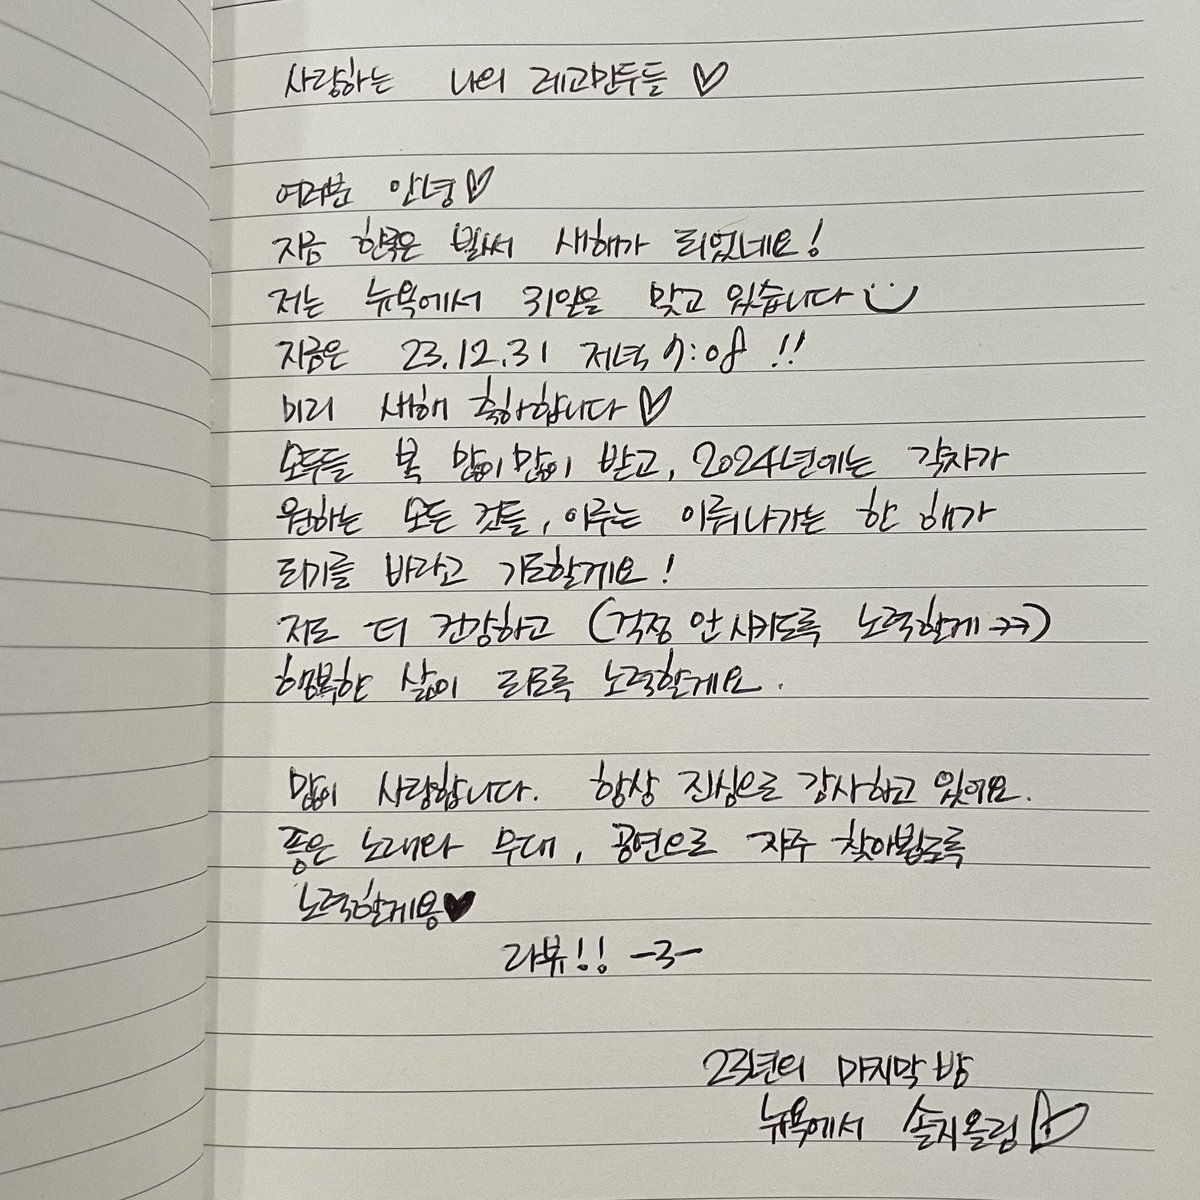 사랑하는 나의 레고만두들 ♡
여러분 안녕♡
지금 한국은 벌써 새해가 되었네요!
저는 뉴욕에서 31일을 맞고 있습니다
지금은 23.12.31 저녁 7:08 !!
미리 새해 축하합니다♡
모두들 복 많이많이 받고, 2024년에는 각자가
원하는 모든 것들, 이루는 이뤄나가는 한 해가
되기를 바라고 기도할게요!
저도 더 건강하고 (걱정 안 시키도록 노력할게 ㅠㅠ)
행복한 삶이 되도록 노력할게요.
많이 사랑합니다. 항상 진심으로 감사하고 있어요.
좋은 노래와 무대, 공연으로 자주 찾아뵙도록
노력할게용♥
라뷰!! -3-
23년의 마지막 밤
뉴욕에서 솔지올림♡